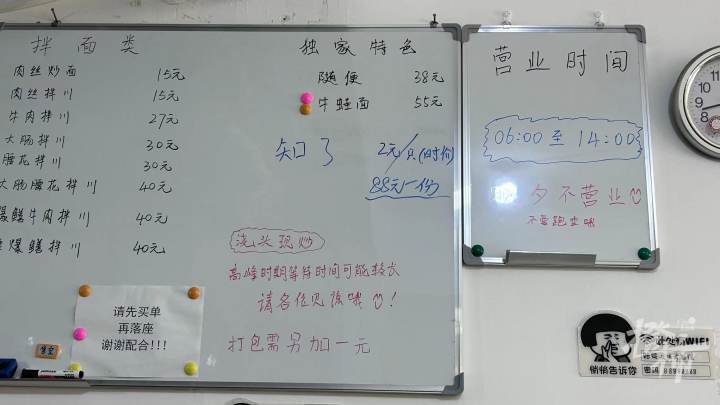 拌面类
肉丝炒面 15元
肉丝拌川 15元
牛肉拌川 27元
大肠拌川 30元
腰花拌川 30元
大肠腰花拌川 40元
爆鳝牛肉拌川 40元
爆鳝拌川 40元
独家特色
随便 38元
牛蛙面 55元
知了 2元/只(时价)
88元一份
浇头现炒
高峰时期等待时间可能较长
请各位见谅哦!
打包需另加一元
请先买单
再落座
谢谢配合!!!
营业时间
06:00至14:00
夕不营业
不要跑空哦
12
WIFI
悄悄告诉你
密码